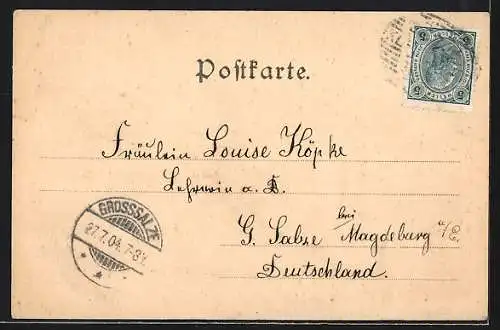 Postkarte.
Fräulein Louise Köpke
Lehrerin a. D.
G. Salze bei Magdeburg a/E.
Deutschland.
GROSSSALZE
27.7.04. 7-8V.
5 5
5 5